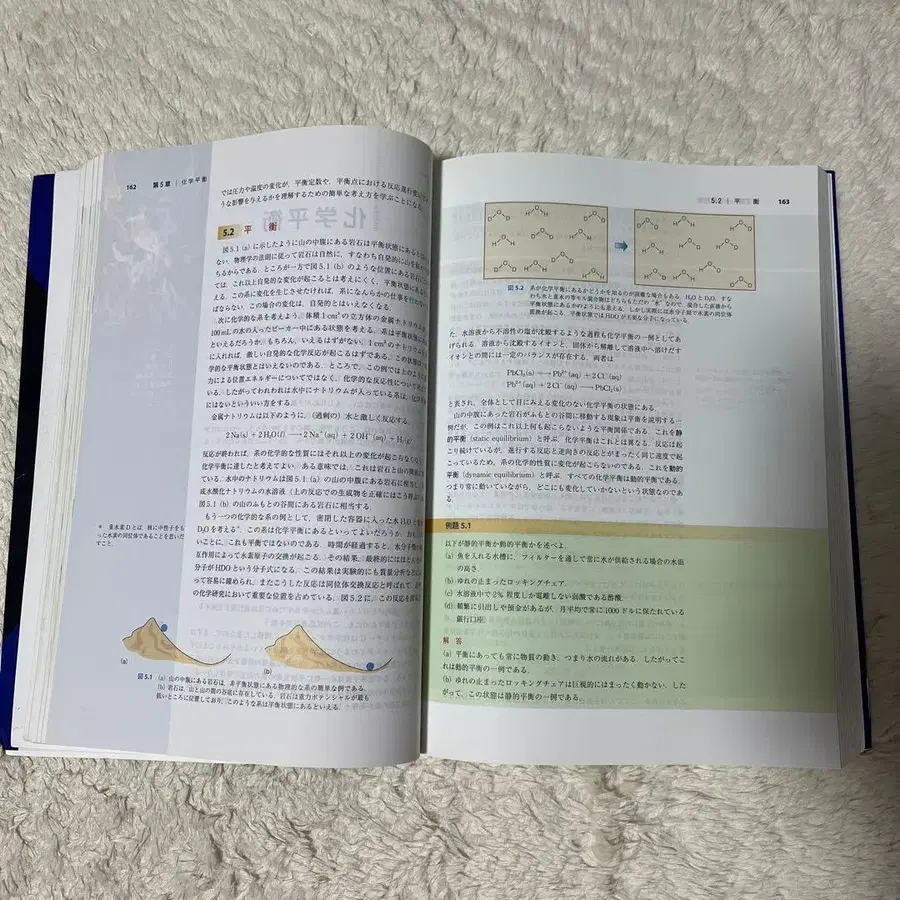 162 第5章 | 化学平衡
では圧力や温度の変化が、平衡定数や、平衡点における反応進行度に
うな影響を与えるかを理解するための簡単な考え方を学ぶことに
5.2 平 衡
図5.1(a)に示したように山の中腹にある岩石は平衡状態にある
ない。物理学の法則に従って岩石は自然に、すなわち自発的に山を
ちるからである。ところが一方で図5.1(b)のような位置にある岩石に
ては、これ以上自発的な変化が起こるとは考えにくく、平衡状態にある
える。この系に変化を生じさせたければ、系になんらかの仕事を
ばならない。この場合の変化は、自発的とはいえなくなる。
次に化学的な系を考えよう。体積1 cm³の立方体の金属ナトリウムが
100 mLの水の入ったビーカー中にある状態を考える。系は平衡状態
といえるだろうか。もちろん、いえるはずがない。1 cm³のナトリウム
に入れれば、激しい自発的な化学反応が起こるはずである。この状態は
学的な平衡状態とはいえないのである。ところで、この例では上のように
力による位置エネルギーについてではなく、化学的な反応性について
る。したがってわれわれは水中にナトリウムが入っている系は、化学
にはないといういい方をする。
金属ナトリウムは以下のように、(過剰の)水と激しく反応する。
2 Na(s) + 2 H₂O(ℓ) ⟶ 2 Na⁺(aq) + 2 OH⁻(aq) + H₂(g)
反応が終われば、系の化学的な性質にはそれ以上の変化が起こらなく
化学平衡に達したと考えてよい。ある意味では、これは岩石と山の関係に
ている。水中のナトリウムは図5.1(a)の山の中腹にある岩石に相当し、
成水酸化ナトリウムの水溶液(上の反応での生成物を正確にはこう呼ぶ)
図5.1(b)の山のふもとの谷間にある岩石に相当する。
もう一つの化学的な系の例として、密閉した容器に入った水H₂Oと
D₂Oを考える*。この系は化学平衡にあるといってよいだろうか。
いことに、これも平衡ではないのである。時間が経過すると、水分子間の
互作用によって水素原子の交換が起こる。その結果、最終的にはほとんど
分子がHDOという分子式になる。この結果は実験的にも質量分析
って容易に確められ、またこうした反応は同位体交換反応と呼ばれて、
の化学研究において重要な位置を占めている。図5.2に、この反応を
* 重水素Dとは、核に中性子をも
った水素の同位体であることを思い
(a)
(b)
図5.1 (a) 山の中腹にある岩石は、非平衡状態にある物理的な系の簡単な例である。
(b) 岩石は、山と山の間の谷底に存在している。岩石は重力ポテンシャルが最も
低いところに位置しており、このような系は平衡状態にあるといえる。
5.2 | 平 衡 163
図5.2 系が化学平衡にあるかどうかを知るのが困難な場合もある。H₂OとD₂O、すな
わち水と重水の等モル混合物はどちらもただの“水”なので、混合した直後から
平衡状態にあるかのようにも思える。しかし実際には水分子間で水素の同位体
置換が起こる。平衡状態ではHDOが主要な分子になっている。
た、水溶液から不溶性の塩が沈殿するような過程も化学平衡の一例としてあ
げられる。溶液から沈殿するイオンと、固体から解離して溶液中へ溶けだす
イオンとの間には一定のバランスが存在する。両者は
PbCl₂(s) ⟶ Pb²⁺(aq) + 2 Cl⁻(aq)
Pb²⁺(aq) + 2 Cl⁻(aq) ⟶ PbCl₂(s)
と表され、全体として目にみえる変化のない化学平衡の状態にある。
山の中腹にあった岩石がふもとの谷間に移動する現象は平衡を説明する一
例だが、この例はこれ以上何も起こらないような平衡関係である。これを静
的平衡 (static equilibrium) と呼ぶ。化学平衡はこれとは異なる。反応は起
こり続けているが、進行する反応と逆向きの反応とがまったく同じ速度で起
こっているため、系の化学的性質に変化が起こらないのである。これを動的
平衡 (dynamic equilibrium) と呼ぶ。すべての化学平衡は動的平衡である。
つまり常に動いていながら、どこにも変化していかないという状態なのであ
る。
例題 5.1
以下が静的平衡か動的平衡かを述べよ。
(a) 魚を入れる水槽に、フィルターを通して常に水が供給される場合の水面
の高さ。
(b) ゆれの止まったロッキングチェア。
(c) 水溶液中で2%程度しか電離しない弱酸である酢酸。
(d) 頻繁に引出しや預金があるが、月平均で常に1000ドルに保たれている
銀行口座。
解 答
(a) 平衡にあっても常に物質の動き、つまり水の流れがある。したがってこ
れは動的平衡の一例である。
(b) ゆれの止まったロッキングチェアは巨視的にはまったく動かない。した
がって、この状態は静的平衡の一例である。